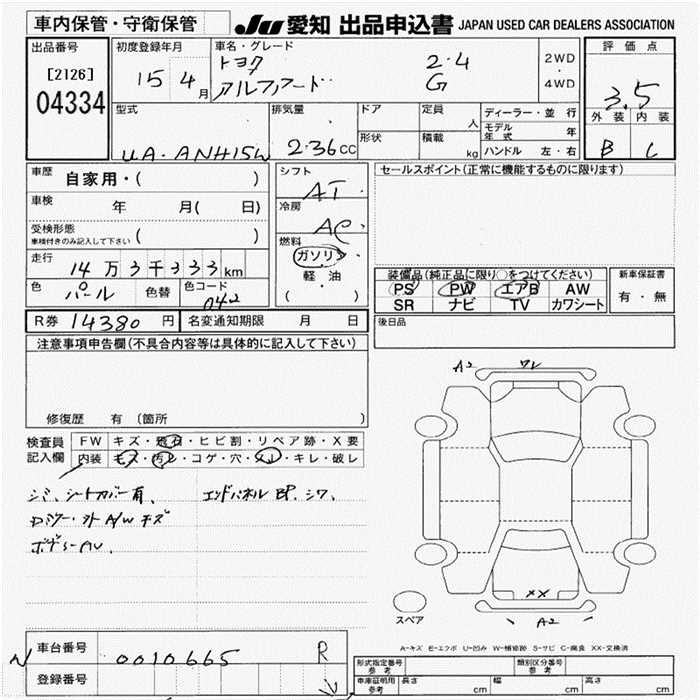 車内保管・守衛保管 JU 愛知 出品申込書 JAPAN USED CAR DEALERS ASSOCIATION
出品番号 [2126] 04334
初度登録年月 15 4月
車名・グレード トヨタ アルファード 2.4 G 2WD・4WD
評価点 3.5
外装 内装 B C
型式 UA-ANH15W
排気量 2.36cc
ドア 形状
定員 人 積載 kg
ディーラー・並行
モデル年式 年
ハンドル 左・右
車歴 自家用・( )
車検 年 月( 日)
受検形態 車検付きのみ記入して下さい ( )
走行 14万3千333km
色 パール 色替 色コード 042
シフト AT
冷房 AC
燃料 ガソリン 軽・油 ( )
セールスポイント(正常に機能するものに限ります)
装備品(純正品に限り○をつけてください)
PS PW エアB AW
SR ナビ TV カワシート
新車保証書 有・無
R券 14380円 名変通知期限 月 日
後日品
注意事項申告欄(不具合内容等は具体的に記入して下さい)
修復歴 有 (箇所 )
検査員記入欄
FW キズ・飛石・ヒビ割・リペア跡・X要
内装 キズ・汚レ・コゲ・穴・スレ・キレ・破レ
シミ、シートカバー有、 エンドパネルBP、シワ、
A2
XX
A2
スペア
A-キズ E-エクボ U-凹み W-補修跡 S-サビ C-腐食 XX-交換済
車台番号 0010665 R
登録番号
形式指定番号 参考 類別区分番号 参考
車庫証明用 参考 長さ cm 幅 cm 高さ cm